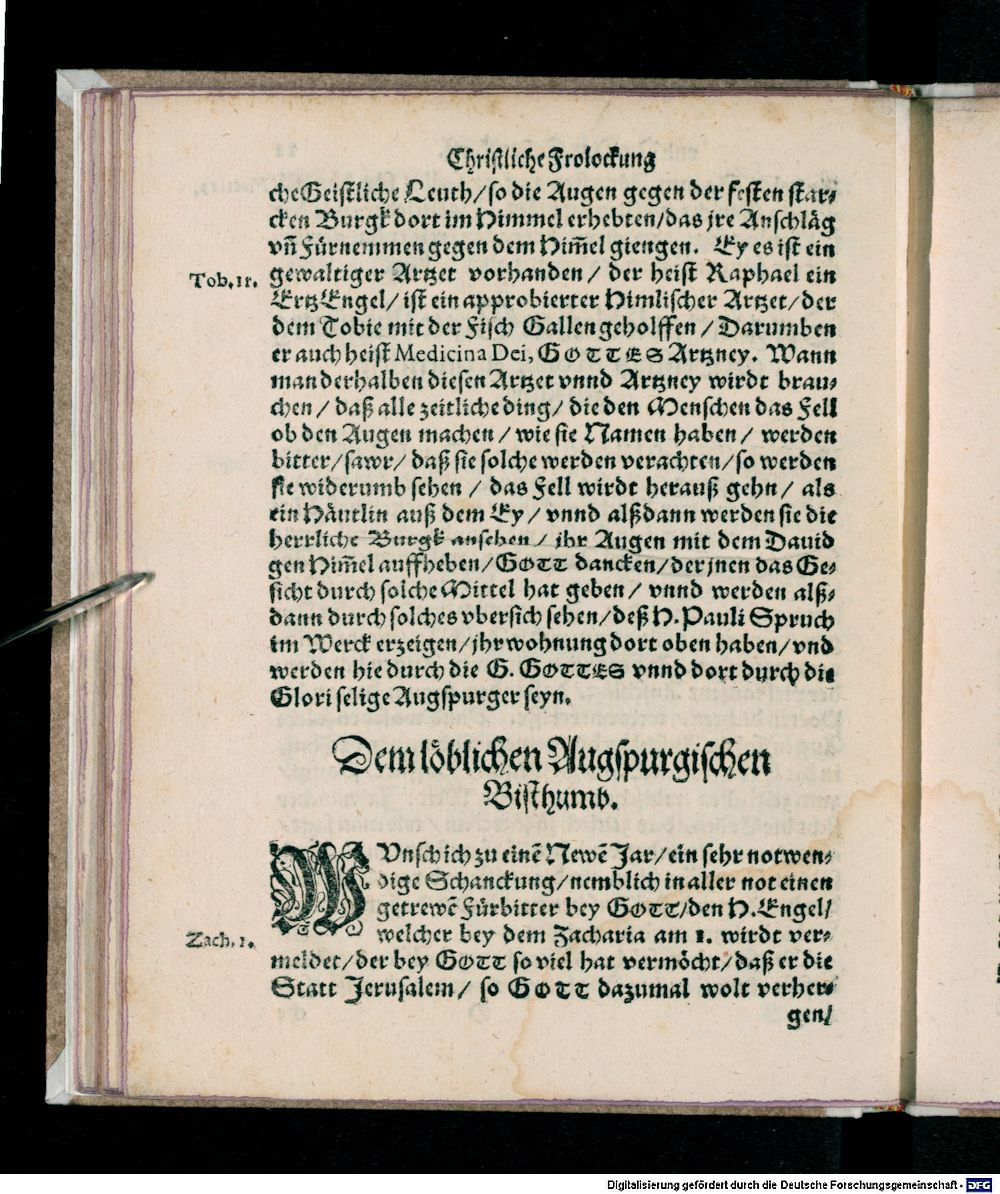 Christliche Frolockung
che Geistliche Leuth/ so die Augen gegen der festen star⸗
cken Burgk dort im Himmel erhebten/ das jre Anschläg
vñ Fürnemmen gegen dem Him̃el giengen. Ey es ist ein
Tob. 11. gewaltiger Artzet vorhanden / der heist Raphael ein
ErtzEngel/ ist ein approbierter Himlischer Artzet/ der
dem Tobie mit der Fisch Gallen geholffen / Darumben
er auch heist Medicina Dei, GOTTES Artzney. Wann
man derhalben diesen Artzet vnnd Artzney wirdt brau⸗
chen / daß alle zeitliche ding/ die den Menschen das Fell
ob den Augen machen / wie sie Namen haben / werden
bitter/ sawr/ daß sie solche werden verachten/ so werden
sie widerumb sehen / das Fell wirdt herauß gehn / als
ein Häutlin auß dem Ey / vnnd alßdann werden sie die
herrliche Burgk ansehen / ihr Augen mit dem Dauid
gen Him̃el auffheben/ GOTT dancken/ der jnen das Ge⸗
sicht durch solche Mittel hat geben / vnnd werden alß⸗
dann durch solches vbersich sehen/ deß H. Pauli Spruch
im Werck erzeigen/ jhr wohnung dort oben haben/ vnd
werden hie durch die G. GOTTES vnnd dort durch die
Glori selige Augspurger seyn.
Dem löblichen Augspurgischen
Bisthumb.
WVnsch ich zu einẽ Newẽ Jar/ ein sehr notwen⸗
dige Schanckung/ nemblich in aller not einen
getrewẽ Fürbitter bey GOTT/ den H. Engel/
Zach. 1. welcher bey dem Zacharia am 1. wirdt ver⸗
meldet/ der bey GOTT so viel hat vermöcht/ daß er die
Statt Jerusalem/ so GOTT dazumal wolt verher⸗
gen/
Digitalisierung gefördert durch die Deutsche Forschungsgemeinschaft - DFG